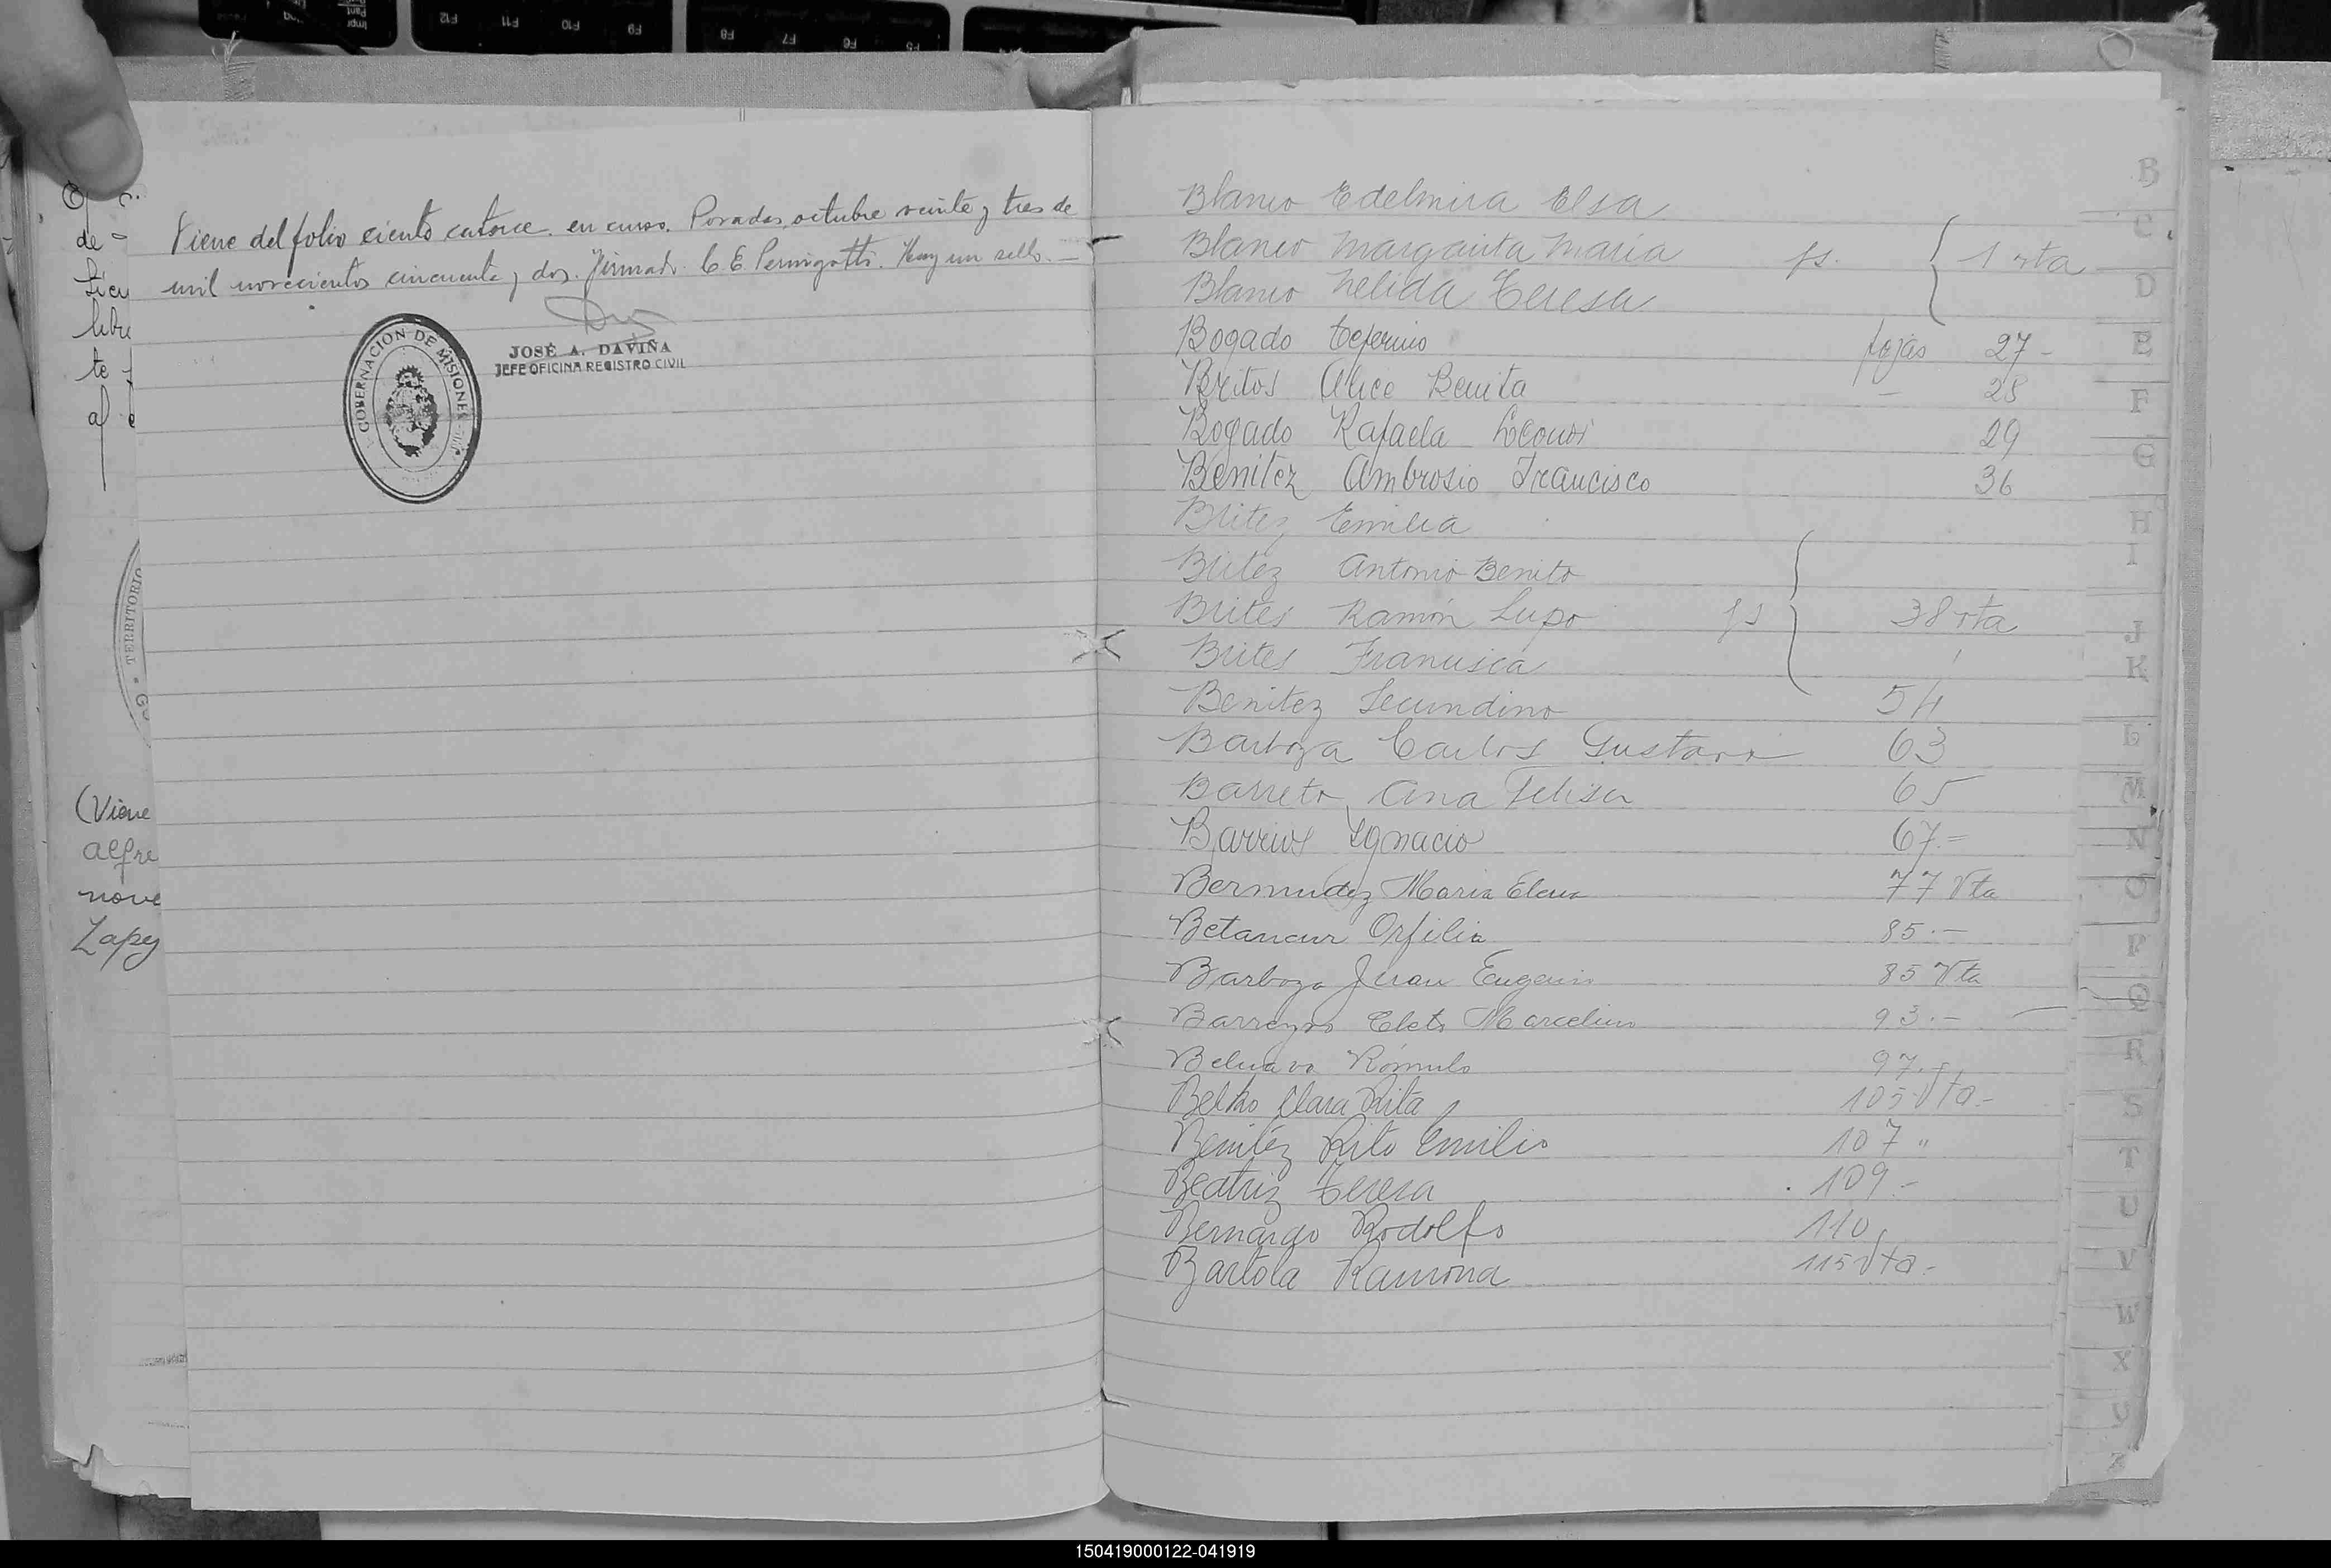 Viene del folio ciento catorce en curso. Posadas, octubre veinte y tres de
mil novecientos cincuenta y dos. Firmado C E Pernigotti. Hay un sello.—
JOSÉ A. DAVIÑA
JEFE OFICINA REGISTRO CIVIL
GOBERNACION DE MISIONES
de
libre
te
al
TERRITORIO
(Viene
alfre
nove
Zapey
Blanco Edelmira Elsa
Blanco Margarita María fs. 1 vta
Blanco Nelida Teresa
Bogado Ceferino fojas 27-
Britos Alice Benita - 28
Bogado Rafaela 29
Benitez Ambrosio Francisco 36
Britez Emilia
Britez Antonio Benito
Brites Ramón Lupo fs 38 vta
Brites Francisca
Benitez Secundino 54
Barboza Carlos Gustavo 63
Barreto Ana Felisa 65
Barrios Ignacio 67.=
Bermudez Maria Elena 77 Vta
Betancur Orfilia 85.-
Barboza Juan Eugenio 85 Vta
Barreyro Cleto Marcelino 93.-
Rómulo 97.-
Belko Clara Rita 105 Vta-
Benitez Rito Emilio 107 "
Beatriz Teresa 109.-
Bernardo Rodolfo 110
Bartola Ramona 115 Vta-
B
C
D
E
F
G
H
I
J
K
L
M
N
O
P
Q
R
S
T
U
V
W
X
Y
Z
F12
F11
F10
F9
F8
F7
F6
F5
150419000122-041919